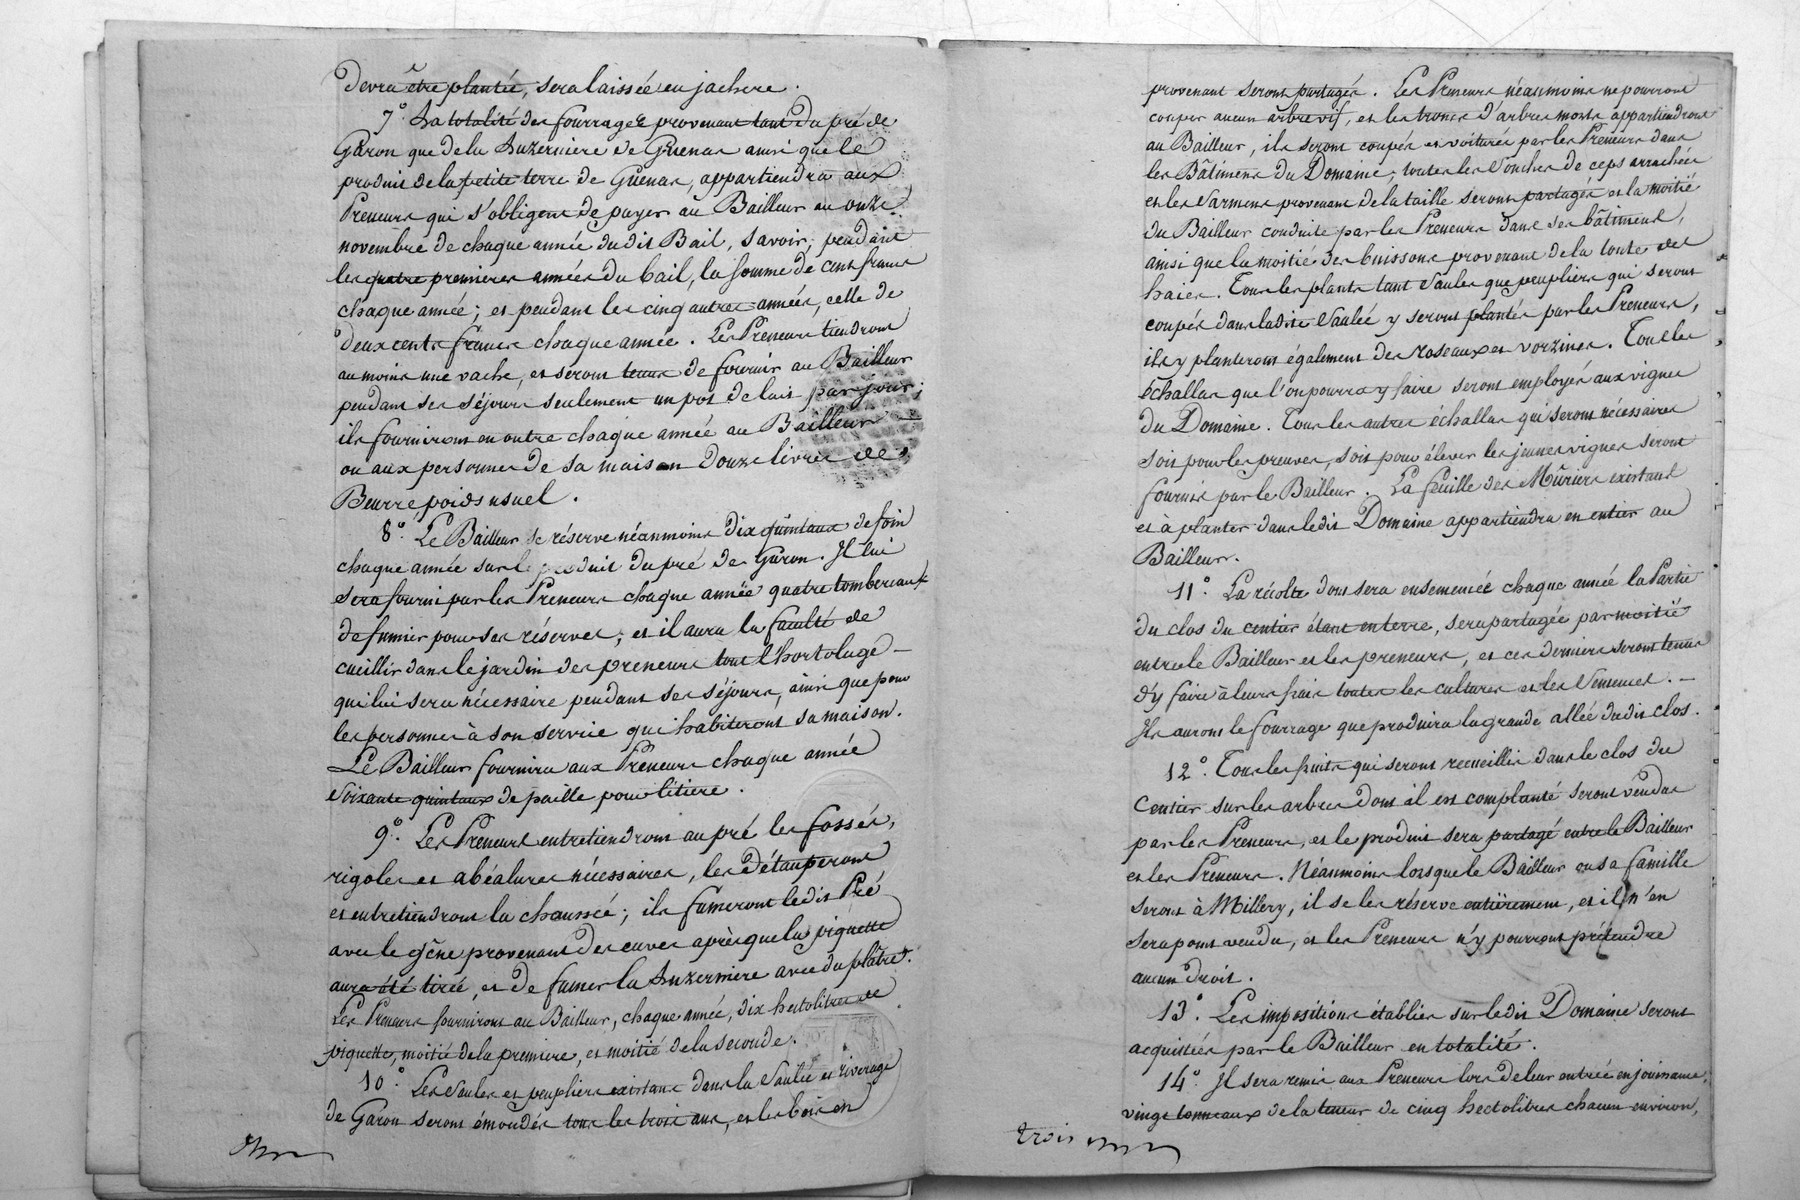 devra être plantée, sera laissée en jachere.
7°. La totalité des fourrages provenant tant du pré de
Garon que de la Luzerniere de Guenas ainsi que le
produit de la petite terre de Guenas, appartiendra aux
Preneurs qui s'obligent de payer au Bailleur au onze
novembre de chaque année dudit Bail, savoir; pendant
les quatre premieres années du bail, la somme de cent francs
chaque année; et pendant les cinq autres années, celle de
deux cents francs chaque année. Les Preneurs tiendront
au moins une vache, et seront tenus de fournir au Bailleur
pendant ses séjours seulement un pot de lait par jour;
ils fourniront en outre chaque année au Bailleur
ou aux personnes de sa maison douze livres de
Beurre, poids usuel.
8°. Le Bailleur se réserve néanmoins dix quintaux de foin
chaque année sur le produit du pré de Garon. Il lui
sera fourni par les Preneurs chaque année quatre tombereaux
de fumier pour ses réserves; et il aura la faculté de
cueillir dans le jardin des preneurs tout l'hortolage
qui lui sera nécessaire pendant ses séjours, ainsi que pour
les personnes à son service qui habiteront sa maison.
Le Bailleur fournira aux Preneurs chaque année
soixante quintaux de paille pour litière.
9°. Les Preneurs entretiendront au pré les fossés,
rigoles et abéalures nécessaires, les détauperont
et entretiendront la chaussée; ils fumeront ledit Pré
avec le gêne provenant des cuves après que la piquette
aura été tirée, et de fumer la Luzerniere avec du plâtre.
Les Preneurs fourniront au Bailleur, chaque année, dix hectolitres de
piquette, moitié de la premiere, et moitié de la seconde.
10°. Les Saules et peupliers existans dans la Saulée et riverage
de Garon seront émondés tous les trois ans, et les bois en
provenant seront partagés. Les Preneurs néanmoins ne pourront
couper aucun arbre vif, et les troncs d'arbres morts appartiendront
au Bailleur, ils seront coupés et voiturés par les Preneurs dans
les Bâtimens du Domaine; toutes les Souches de ceps arrachées
et les Sarmens provenant de la taille seront partagés et la moitié
du Bailleur conduite par les Preneurs dans ses bâtimens,
ainsi que la moitié des buissons provenant de la tonte des
haies. Tous les plants tant Saules que peupliers qui seront
coupés dans ladite Saulée y seront plantés par les Preneurs,
ils y planteront également des roseaux et vorzines. Tous les
échallas que l'on pourra y faire seront employés aux vignes
du Domaine. Tous les autres échallas qui seront nécessaires
soit pour les preuves, soit pour élever les jeunes vignes seront
fournis par le Bailleur. La feuille des Mûriers existans
et à planter dans ledit Domaine appartiendra en entier au
Bailleur.
11°. La récolte dont sera ensemencée chaque année la Partie
du clos du centier étant en terre, sera partagée par moitié
entre le Bailleur et les preneurs, et ces derniers seront tenus
d'y faire à leurs frais toutes les cultures et les Semences.
Ils auront le fourrage que produira la grande allée dudit clos.
12°. Tous les fruits qui seront recueillis dans le clos du
Centier sur les arbres dont il est complanté seront vendus
par les Preneurs, et le produit sera partagé entre le Bailleur
et les Preneurs. Néanmoins lorsque le Bailleur ou sa famille
seront à Millery, il se les réserve entièrement, et il n'en
sera point vendu, et les Preneurs n'y pourront prétendre
aucun droit.
13°. Les impositions établies sur ledit Domaine seront
acquittées par le Bailleur en totalité.
14°. Il sera remis aux Preneurs lors de leur entrée en jouissance,
vingt tonneaux de la teneur de cinq hectolitres chacun environ,
trois